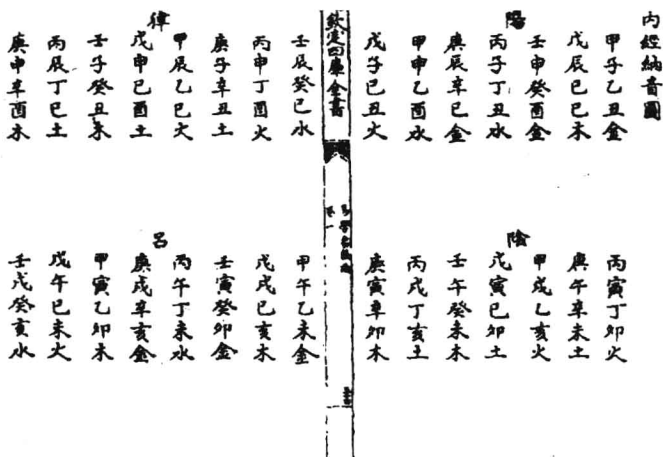 内經納音圖
陽
甲子乙丑金
戊辰己巳木
壬申癸酉金
丙子丁丑水
庚辰辛巳金
甲申乙酉水
戊子己丑火
陰
丙寅丁卯火
庚午辛未土
甲戌乙亥火
戊寅己卯土
壬午癸未木
丙戌丁亥土
庚寅辛卯木
欽定四庫全書
律
壬辰癸巳水
丙申丁酉火
庚子辛丑土
甲辰乙巳火
戊申己酉土
壬子癸丑木
丙辰丁巳土
庚申辛酉木
呂
甲午乙未金
戊戌己亥木
壬寅癸卯金
丙午丁未水
庚戌辛亥金
甲寅乙卯木
戊午己未火
壬戌癸亥水